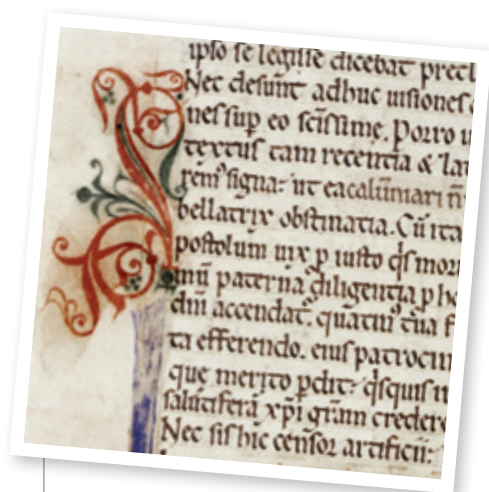 ipso se legisse dicebat precl
Nec desunt adhuc uisiones
nes sup eo scissime. Porro u
textus tam recentia & lat
rem signa: ut ea calumiari n̄
bellatrix obstinatia. Cū ita
postolum uix p iusto qs mor
mū paterna diligentia p ho
dm̄ accendat. quatin tua f
ta efferendo. eius patrocin
que merito pdit: qsquis in
salutiferā xpi gram creder
Nec sis hic censor artificii: